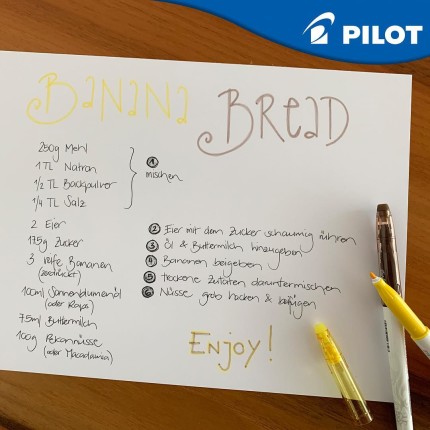 PILOT
BANANA BREAD
250g Mehl
1 TL Natron
1/2 TL Backpulver
1/4 TL Salz
① mischen
2 Eier
175g Zucker
3 reife Bananen
(zerdrückt)
100ml Sonnenblumenöl
(oder Raps)
75ml Buttermilch
100g Pekannüsse
(oder Macadamia)
② Eier mit dem Zucker schaumig rühren
③ Öl & Buttermilch hinzugeben
④ Bananen beigeben
⑤ trockene Zutaten daruntermischen
⑥ Nüsse grob hacken & beifügen
Enjoy!